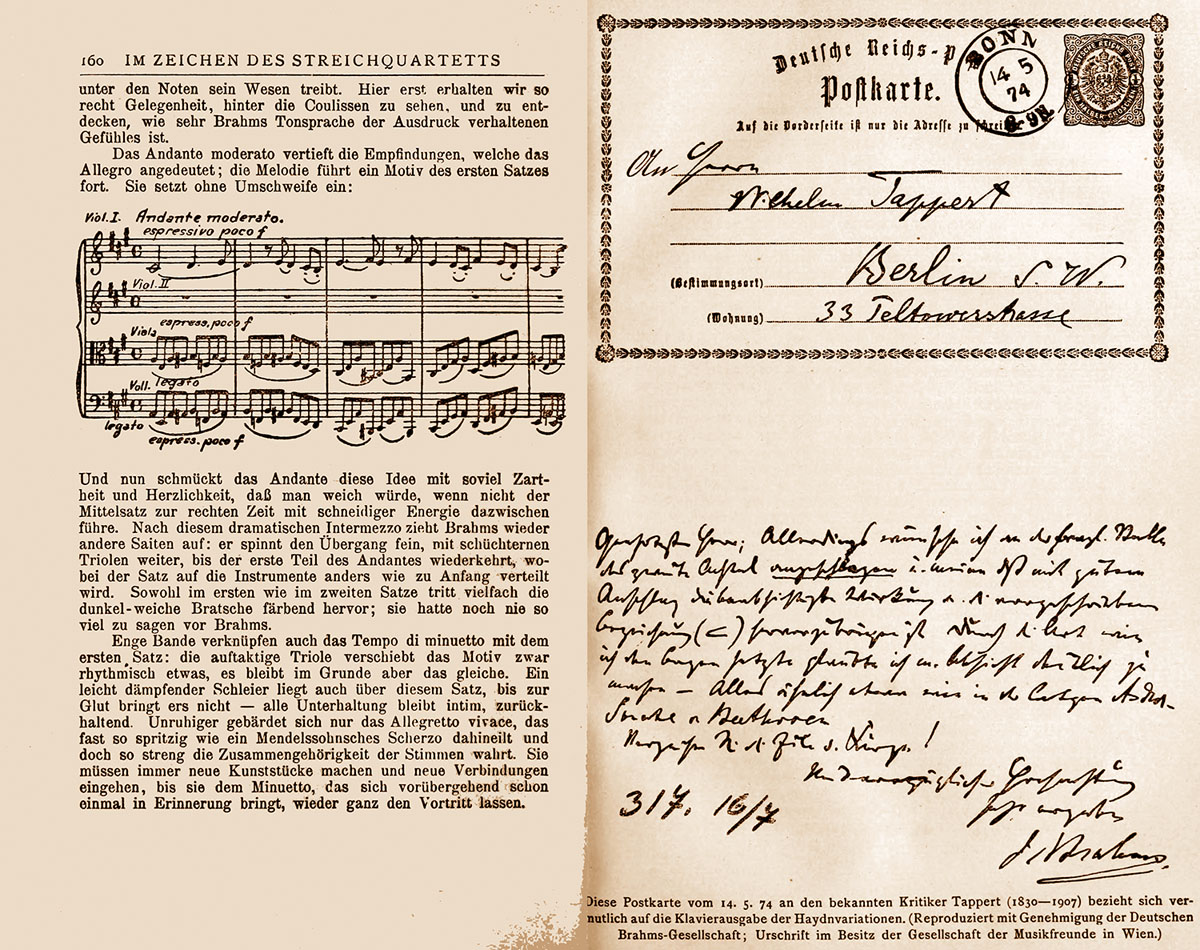 160 IM ZEICHEN DES STREICHQUARTETTS
unter den Noten sein Wesen treibt. Hier erst erhalten wir so
recht Gelegenheit, hinter die Coulissen zu sehen, und zu ent-
decken, wie sehr Brahms Tonsprache der Ausdruck verhaltenen
Gefühles ist.
Das Andante moderato vertieft die Empfindungen, welche das
Allegro angedeutet; die Melodie führt ein Motiv des ersten Satzes
fort. Sie setzt ohne Umschweife ein:
Viol. I. Andante moderato.
espressivo poco f
Viol. II
espress. poco f
Viola
legato
Voll.
legato
espress. poco f
Und nun schmückt das Andante diese Idee mit soviel Zart-
heit und Herzlichkeit, daß man weich würde, wenn nicht der
Mittelsatz zur rechten Zeit mit schneidiger Energie dazwischen
führe. Nach diesem dramatischen Intermezzo zieht Brahms wieder
andere Saiten auf: er spinnt den Übergang fein, mit schüchternen
Triolen weiter, bis der erste Teil des Andantes wiederkehrt, wo-
bei der Satz auf die Instrumente anders wie zu Anfang verteilt
wird. Sowohl im ersten wie im zweiten Satze tritt vielfach die
dunkel-weiche Bratsche färbend hervor; sie hatte noch nie so
viel zu sagen vor Brahms.
Enge Bande verknüpfen auch das Tempo di minuetto mit dem
ersten Satz: die auftaktige Triole verschiebt das Motiv zwar
rhythmisch etwas, es bleibt im Grunde aber das gleiche. Ein
leicht dämpfender Schleier liegt auch über diesem Satz, bis zur
Glut bringt ers nicht — alle Unterhaltung bleibt intim, zurück-
haltend. Unruhiger gebärdet sich nur das Allegretto vivace, das
fast so spritzig wie ein Mendelssohnsches Scherzo dahineilt und
doch so streng die Zusammengehörigkeit der Stimmen wahrt. Sie
müssen immer neue Kunststücke machen und neue Verbindungen
eingehen, bis sie dem Minuetto, das sich vorübergehend schon
einmal in Erinnerung bringt, wieder ganz den Vortritt lassen.
Deutsche Reichs-P
Postkarte.
BONN
14 5
74
8-9N
Auf die Vorderseite ist nur die Adresse zu schreiben
An Herrn
Wilhelm Tappert
(Bestimmungsort) Berlin S. W.
(Wohnung) 33 Teltowerstrasse
Allerdings wünsche ich an der
das zweite Achtel angeschlagen
Anschlag
ich den Bogen setzte glaubte ich m. Absicht deutlich zu
machen — Alles ähnlich etwa wie in der As dur-
Sonate v. Beethoven
317. 16/7
J. Brahms.
Diese Postkarte vom 14. 5. 74 an den bekannten Kritiker Tappert (1830—1907) bezieht sich ver-
mutlich auf die Klavierausgabe der Haydnvariationen. (Reproduziert mit Genehmigung der Deutschen
Brahms-Gesellschaft; Urschrift im Besitz der Gesellschaft der Musikfreunde in Wien.)